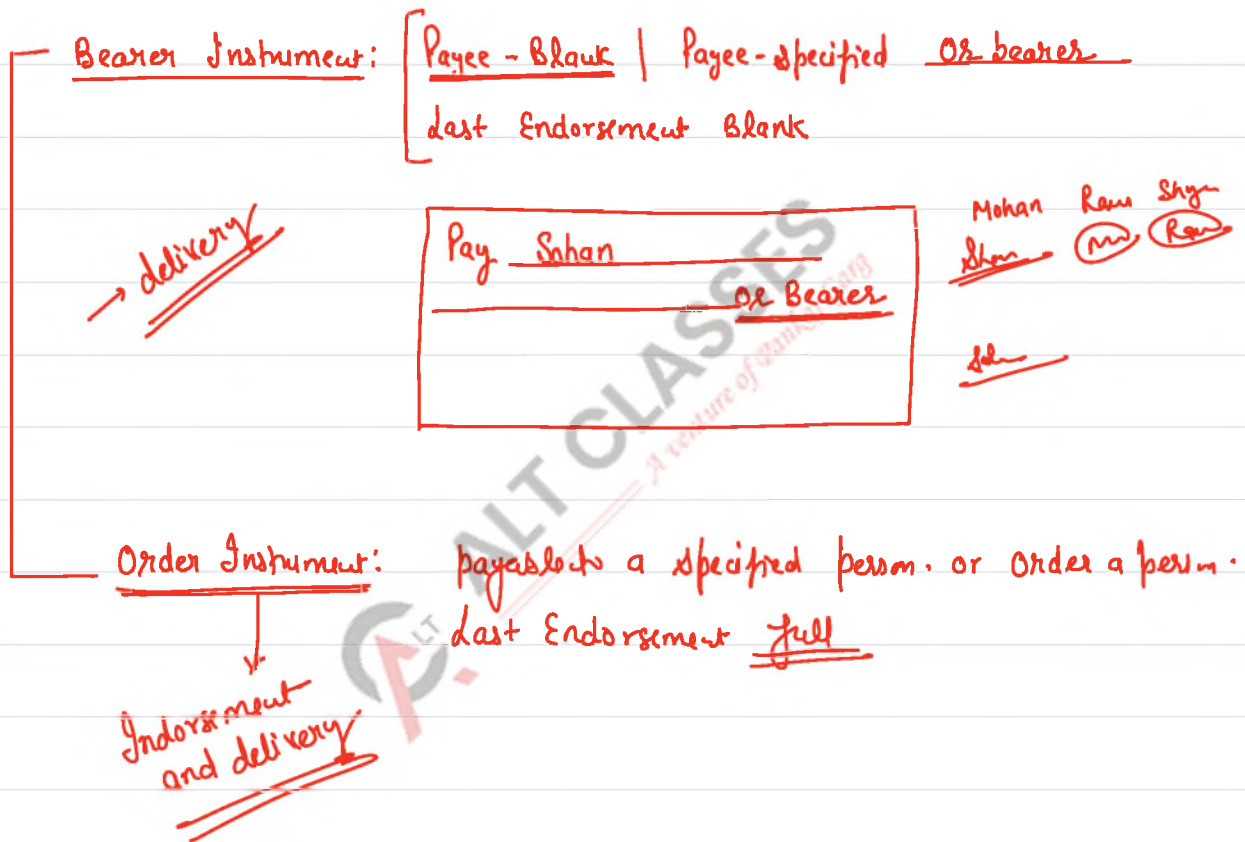 Bearer Instrument: Payee - Blank | Payee - specified or bearer
Last Endorsement Blank
→ delivery
Pay Sohan
or Bearer
Mohan Ram Shyam
Ram
ALT CLASSES
A venture of Pankaj Garg
Order Instrument: payable to a specified person. or order a person.
Last Endorsement full
ALT
Indorsement
and delivery